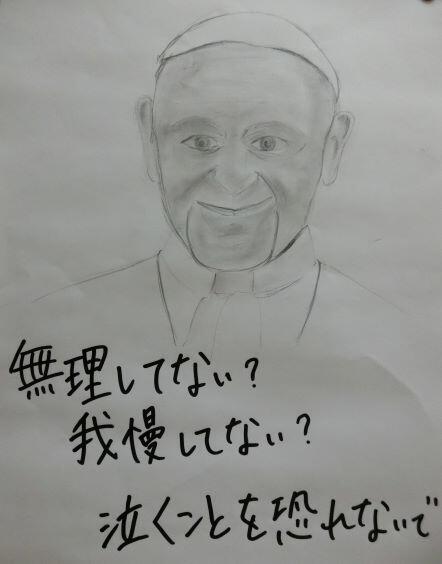 無理してない?
我慢してない?
泣くことを恐れないで